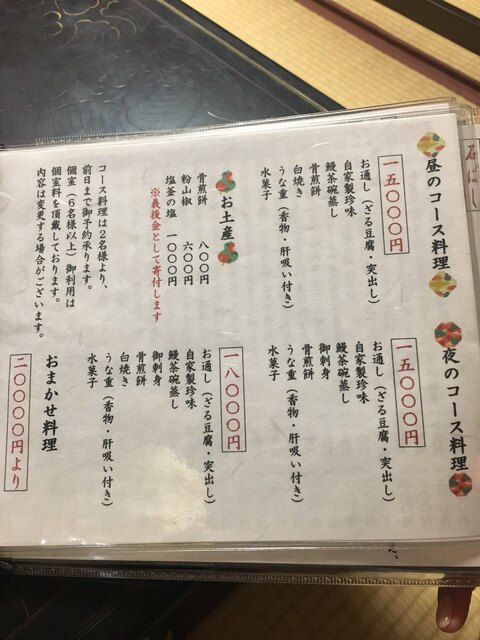 石ばし
昼のコース料理
一五〇〇〇円
お通し（ざる豆腐・突出し）
自家製珍味
鰻茶碗蒸し
骨煎餅
白焼き
うな重（香物・肝吸い付き）
水菓子
お土産
骨煎餅 八〇〇円
粉山椒 六〇〇円
塩釜の塩 一〇〇〇円
※義援金として寄付します
コース料理は２名様より、
前日まで御予約承ります。
個室（６名様以上）御利用は
個室料を頂戴しております。
内容は変更する場合がございます。
夜のコース料理
一五〇〇〇円
お通し（ざる豆腐・突出し）
自家製珍味
鰻茶碗蒸し
御刺身
骨煎餅
うな重（香物・肝吸い付き）
水菓子
一八〇〇〇円
お通し（ざる豆腐・突出し）
自家製珍味
鰻茶碗蒸し
御刺身
骨煎餅
白焼き
うな重（香物・肝吸い付き）
水菓子
おまかせ料理
二〇〇〇〇円より